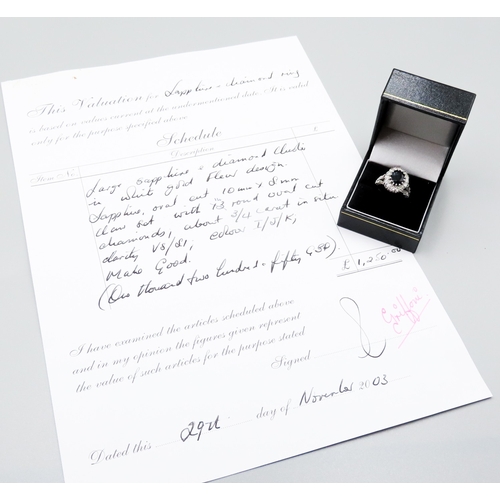 This Valuation for Sapphire + diamond ring
is based on values current at the undermentioned date. It is valid
only for the purpose specified above
Schedule
Item No. Description £
Large sapphire + diamond cluster
in white gold flew design.
Sapphire, oval cut 10mm x 8mm
claw set with 13 round oval cut
diamonds, about 3/4 carat in
clarity VS/SI, colour I/J/K,
Make Good.
(One thousand two hundred + fifty GBP)
£1,250.00
I have examined the articles scheduled above
and in my opinion the figures given represent
the value of such articles for the purpose stated
Signed
Dated this 29th day of November 2003